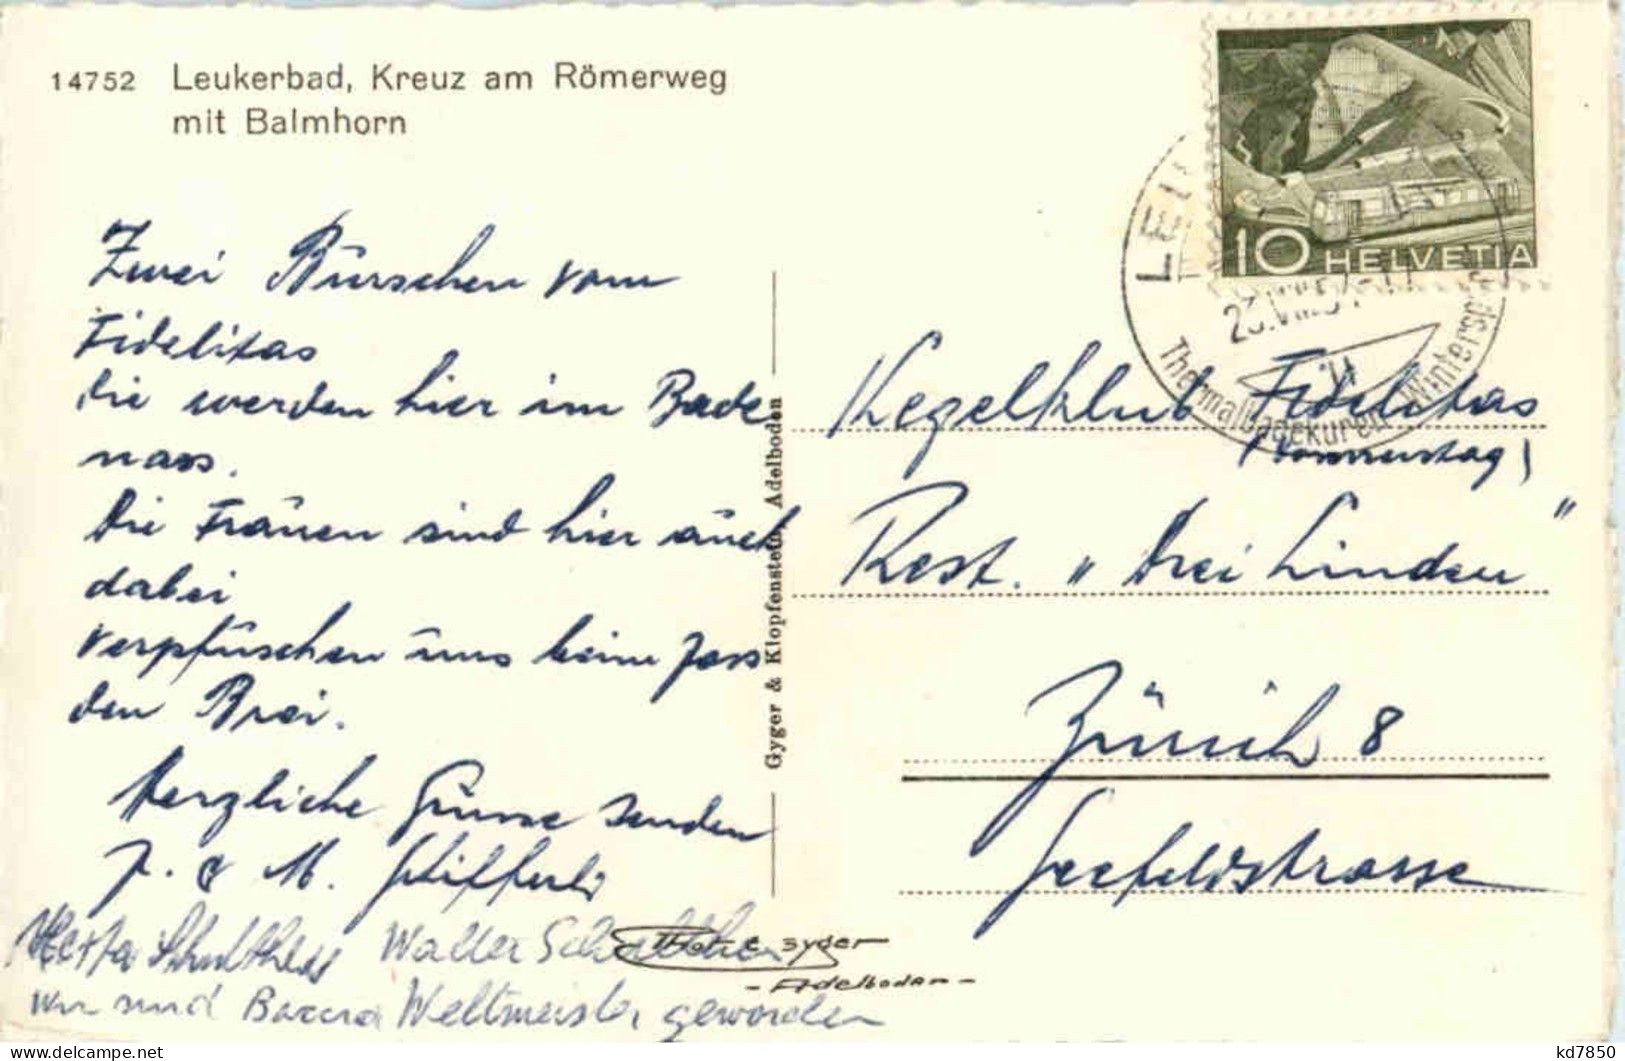 14752 Leukerbad, Kreuz am Römerweg
mit Balmhorn
Zwei Burschen vom
Fidelitas
die werden hier im Bade
nass.
Die Frauen sind hier auch
dabei
verpfuschen uns beim Jass
den Brei.
Herzliche Grüsse senden
J. & M.
Herta Schulthess Walter
wir sind Weltmeister geworden
Gyger & Klopfenstein, Adelboden
Phot. E. Gyger
- Adelboden -
10 HELVETIA
23.VIII.
Thermalbadekuren Wintersp
Kegelklub Fidelitas
(Donnerstag)
Rest. „Drei Linden"
Zürich 8
Seefeldstrasse
kd7850